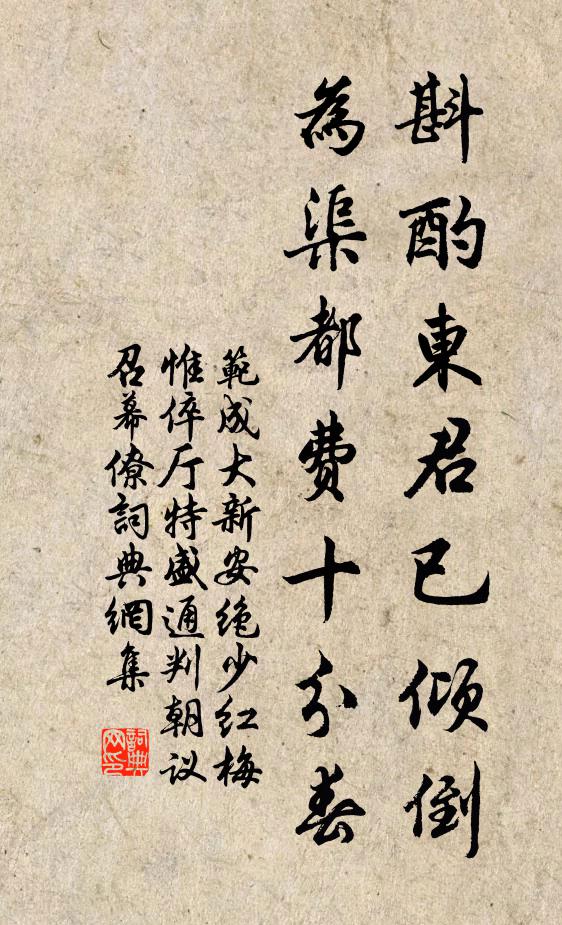 斟酌東君已傾倒
為渠都費十分春
範成大新安绝少红梅
惟倅厅特盛通判朝议
召幕僚詞典網集
詞典网印